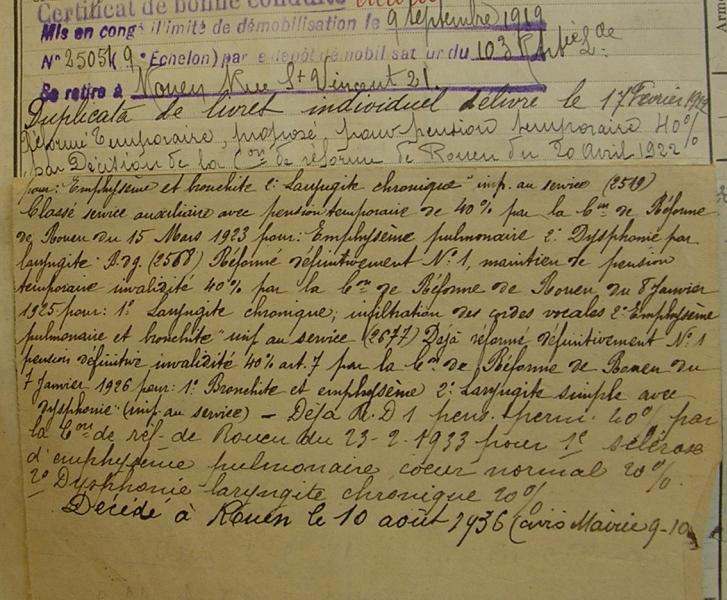 Certificat de bonne conduite
Mis en congé illimité de démobilisation le 9 septembre 1919
N° 2505 9e Échelon) par le dépôt démobilisateur du 103e
Se retire à Rouen Rue St Vincent 21.
Duplicata de livret individuel délivré le 17 Février
Réforme temporaire, proposé pour pension temporaire 40%
par Décision de la Con de réforme de Rouen du 20 Avril 1922
pour: "Emphysème et bronchite 2: Laryngite chronique" imp. au service (2519)
Classé service auxiliaire avec pension temporaire de 40% par la Con de Réforme
de Rouen du 15 Mars 1923 pour: Emphysème pulmonaire 2: Dysphonie par
laryngite (2568) Réformé définitivement N°1, maintien de pension
temporaire invalidité 40% par la Con de Réforme de Rouen du 8 Janvier
1925 pour: 1° Laryngite chronique; infiltration des cordes vocales 2° Emphysème
pulmonaire et bronchite" imp au service (2677) Déjà réformé définitivement N°1
pension définitive invalidité 40% art. 7 par la Con de Réforme de Rouen du
7 Janvier 1926 pour: 1° Bronchite et emphysème 2: Laryngite simple avec
dysphonie (imp. au service) — Déjà R.D 1 pens. perm. 40% par
la Con de réf. de Rouen du 23-2-1933 pour 1° sclérose
d'emphysème pulmonaire, coeur normal 20%.
2° Dysphonie laryngite chronique 20%
Décédé à Rouen le 10 août 1936 (avis Mairie 9-10